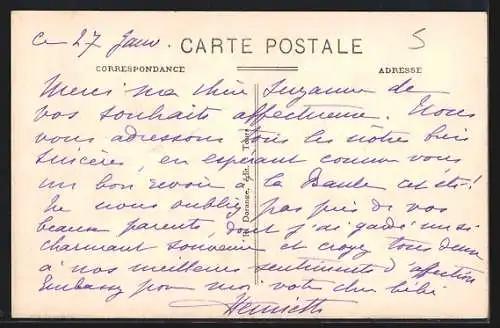 ce 27 Janv.
CARTE POSTALE
5
CORRESPONDANCE
ADRESSE
Merci ma chère Suzanne de
vos souhaits affectueux. Nous
vous adressons tous les nôtres bien
sincères, en espérant comme vous
un bon revoir à la Baule cet été!
Ne nous oubliez pas près de vos
beaux parents, dont j'ai gardé un si
charmant souvenir et croyez tous deux
à nos meilleurs sentiments d'affection
Embrassez pour moi votre cher bébé
Henriette
Dorange, édit. Tours